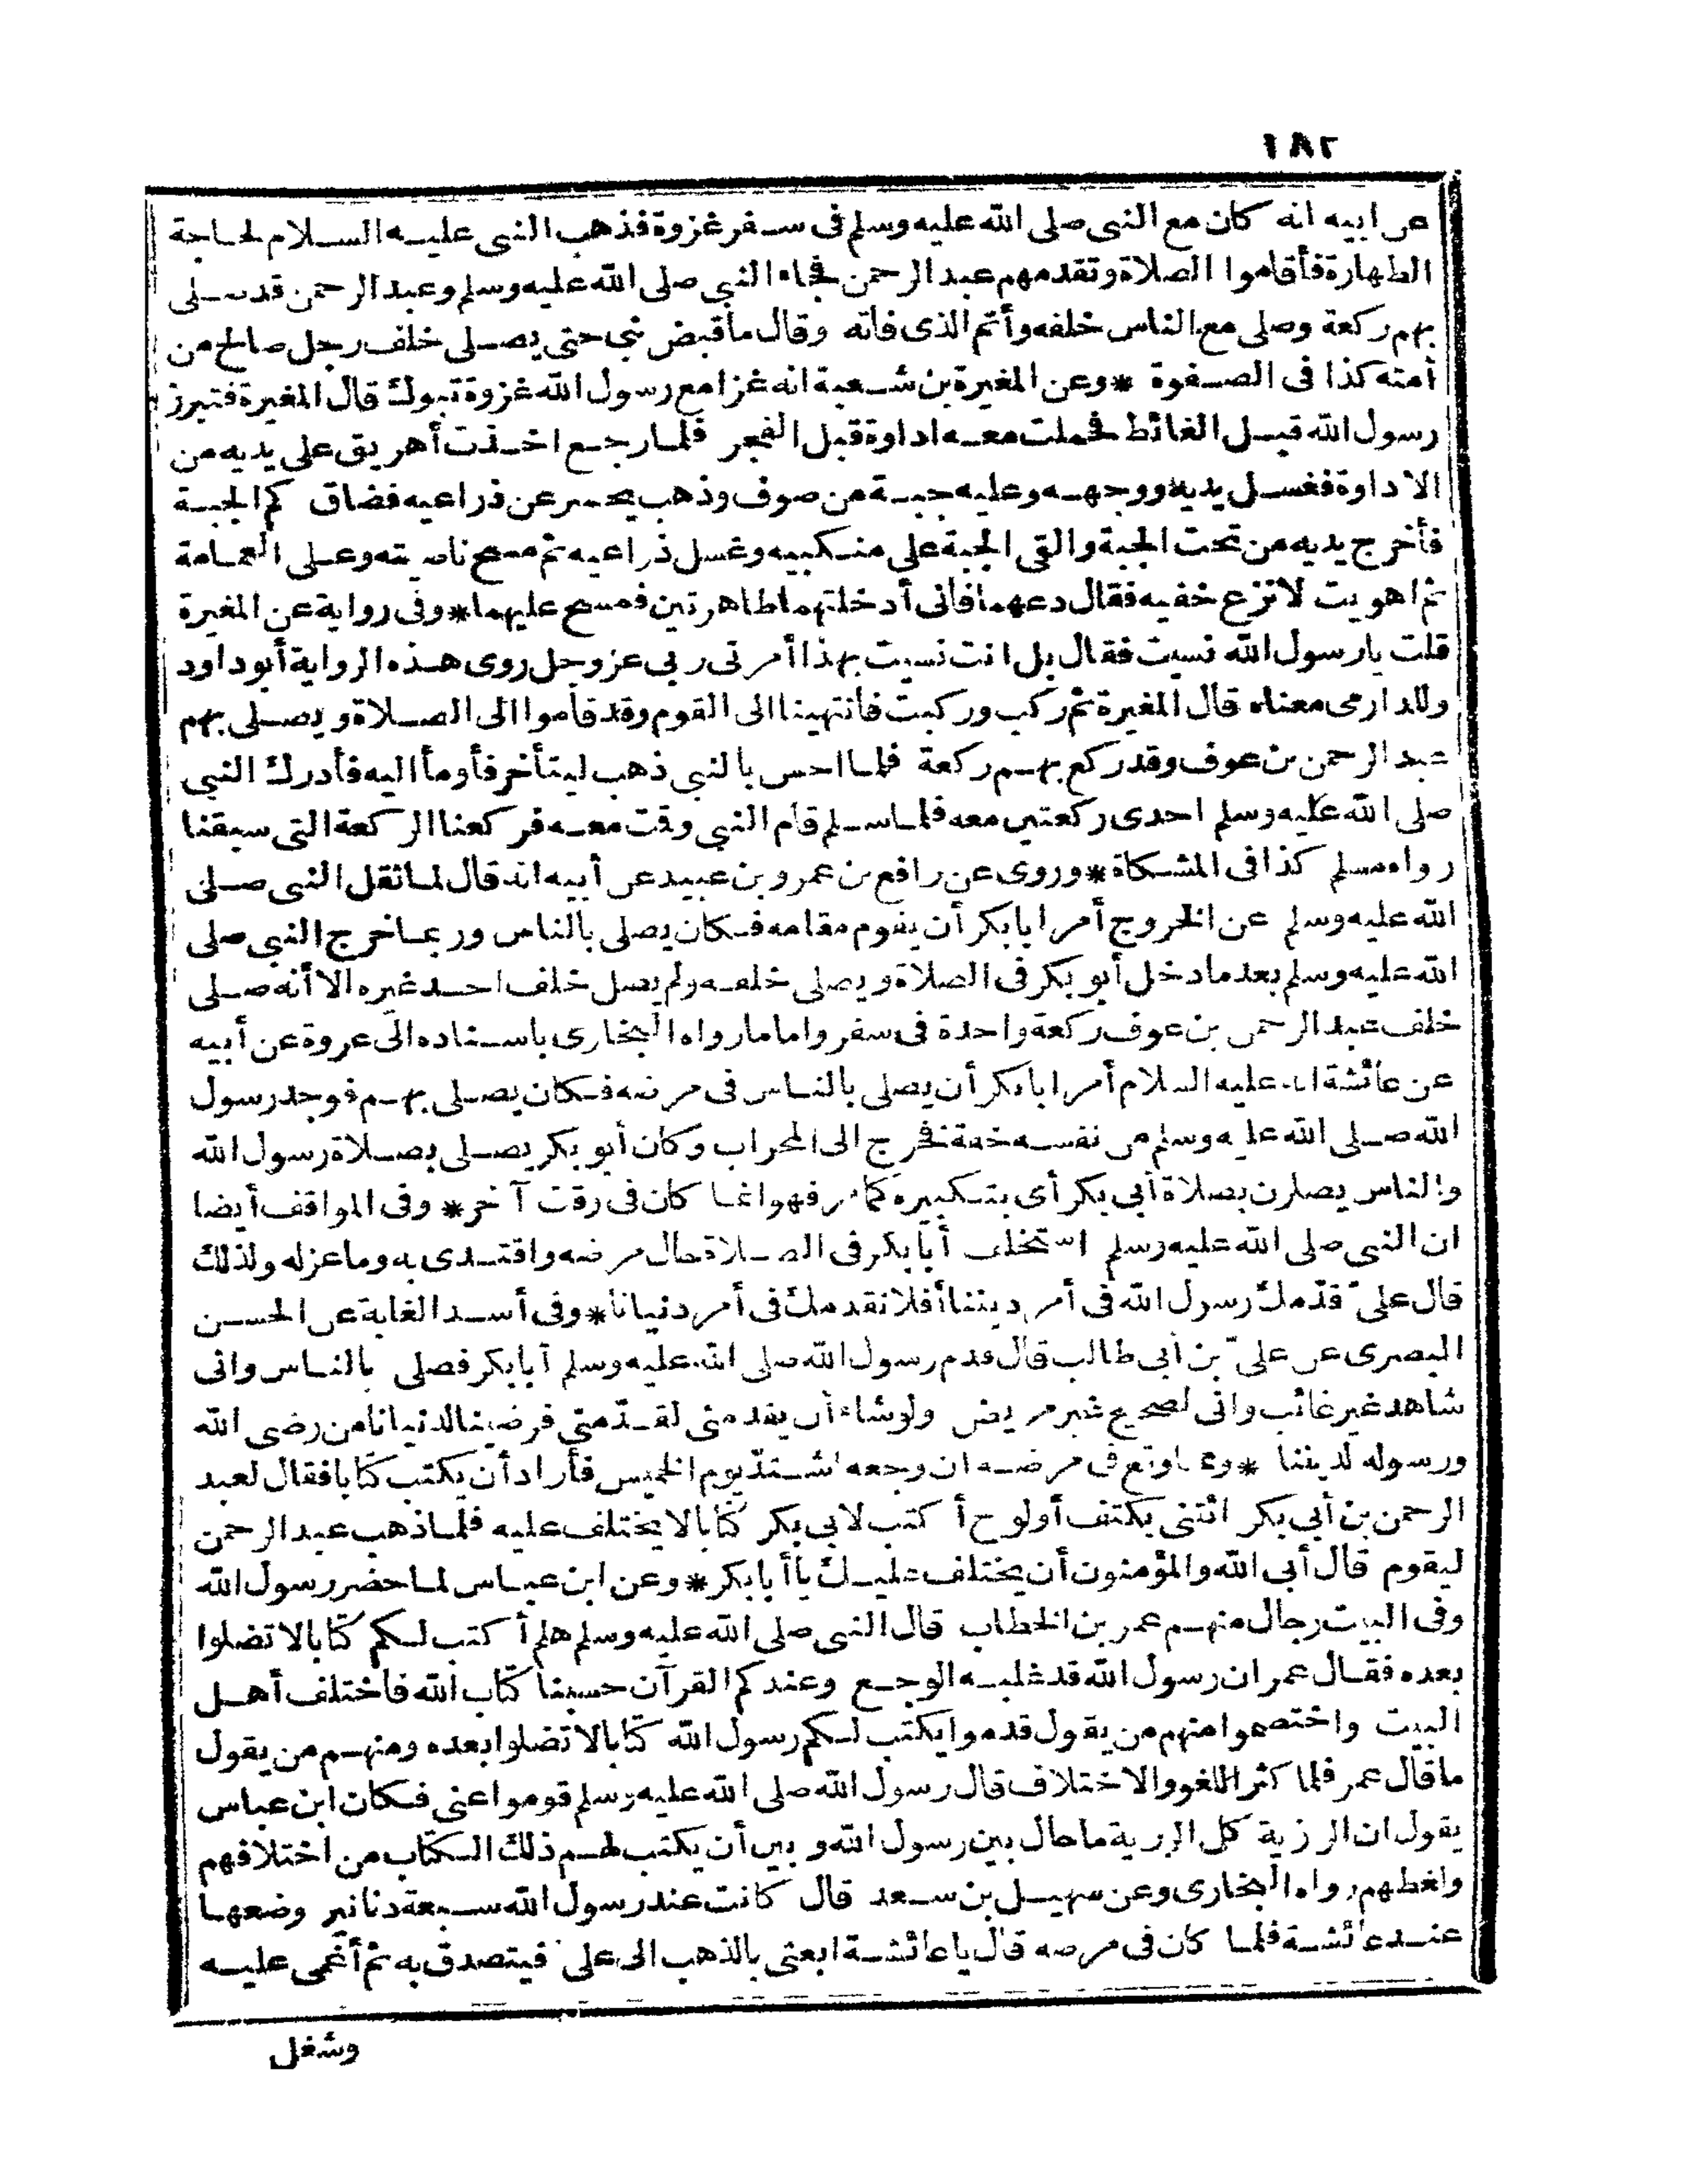 ١٨٢
عن ابيه انه كان مع النبى صلى الله عليه وسلم فى سفر غزوة فذهب النبى عليه السلام لحاجة
الطهارة فأقاموا الصلاة وتقدمهم عبد الرحمن فجاء النبى صلى الله عليه وسلم وعبد الرحمن قد صلى
بهم ركعة وصلى مع الناس خلفه وأتم الذى فاته وقال ما قبض نبى حتى يصلى خلف رجل صالح من
أمته كذا فى الصفوة * وعن المغيرة بن شعبة انه غزا مع رسول الله غزوة تبوك قال المغيرة فتبرز
رسول الله قبل الغائط فحملت معه اداوة قبل الفجر فلما رجع اخذت أهريق على يديه من
الاداوة فغسل يديه ووجهه وعليه جبة من صوف وذهب يحسر عن ذراعيه فضاق كم الجبة
فأخرج يديه من تحت الجبة والقى الجبة على منكبيه وغسل ذراعيه ثم مسح ناصيته وعلى العمامة
ثم اهويت لانزع خفيه فقال دعهما فانى أدخلتهما طاهرتين فمسح عليهما * وفى رواية عن المغيرة
قلت يا رسول الله نسيت فقال بل انت نسيت بهذا أمرنى ربى عز وجل روى هذه الرواية أبو داود
وللدارمى معناه قال المغيرة ثم ركب وركبت فانتهينا الى القوم وقد قاموا الى الصلاة ويصلى بهم
عبد الرحمن بن عوف وقد ركع بهم ركعة فلما احس بالنبى ذهب ليتأخر فأومأ اليه فأدرك النبى
صلى الله عليه وسلم احدى ركعتين معه فلما سلم قام النبى وقمت معه فركعنا الركعة التى سبقنا
رواه مسلم كذا فى المشكاة * وروى عن رافع بن عمرو بن عبيد عن أبيه انه قال لما ثقل النبى صلى
الله عليه وسلم عن الخروج أمر ابا بكر أن يقوم مقامه فكان يصلى بالناس وربما خرج النبى صلى
الله عليه وسلم بعد ما دخل أبو بكر فى الصلاة ويصلى خلفه ولم يصل خلف احد غيره الا أنه صلى
خلف عبد الرحمن بن عوف ركعة واحدة فى سفر واما ما رواه البخارى باسناده الى عروة عن أبيه
عن عائشة انه عليه السلام أمر ابا بكر أن يصلى بالناس فى مرضه فكان يصلى بهم فوجد رسول
الله صلى الله عليه وسلم من نفسه خفة فخرج الى المحراب وكان أبو بكر يصلى بصلاة رسول الله
والناس يصلون بصلاة أبى بكر أى بتكبيره كما مر فهو انما كان فى وقت آخر * وفى المواقف أيضا
ان النبى صلى الله عليه وسلم استخلف أبا بكر فى الصلاة حال مرضه واقتدى به وما عزله ولذلك
قال علىّ قدّمك رسول الله فى أمر ديننا أفلا نقدمك فى أمر دنيانا * وفى أسد الغابة عن الحسن
البصرى عن علىّ بن أبى طالب قال قدم رسول الله صلى الله عليه وسلم أبا بكر فصلى بالناس وانى
شاهد غير غائب وانى لصحيح غير مريض ولو شاء أن يقدمنى لقدّمنى فرضينا لدنيانا من رضى الله
ورسوله لديننا * ومما وقع فى مرضه ان وجعه اشتدّ يوم الخميس فأراد أن يكتب كتابا فقال لعبد
الرحمن بن أبى بكر ائتنى بكتف أو لوح أكتب لابى بكر كتابا لا يختلف عليه فلما ذهب عبد الرحمن
ليقوم قال أبى الله والمؤمنون أن يختلف عليك يا أبا بكر * وعن ابن عباس لما حضر رسول الله
وفى البيت رجال منهم عمر بن الخطاب قال النبى صلى الله عليه وسلم هلم أكتب لكم كتابا لا تضلوا
بعده فقال عمر ان رسول الله قد غلبه الوجع وعندكم القرآن حسبنا كتاب الله فاختلف أهل
البيت واختصموا منهم من يقول قدموا يكتب لكم رسول الله كتابا لا تضلوا بعده ومنهم من يقول
ما قال عمر فلما كثر اللغو والاختلاف قال رسول الله صلى الله عليه وسلم قوموا عنى فكان ابن عباس
يقول ان الرزية كل الرزية ما حال بين رسول الله وبين أن يكتب لهم ذلك الكتاب من اختلافهم
ولغطهم رواه البخارى وعن سهيل بن سعد قال كانت عند رسول الله سبعة دنانير وضعها
عند عائشة فلما كان فى مرضه قال يا عائشة ابعثى بالذهب الى على فيتصدق به ثم أغمى عليه
وشغل